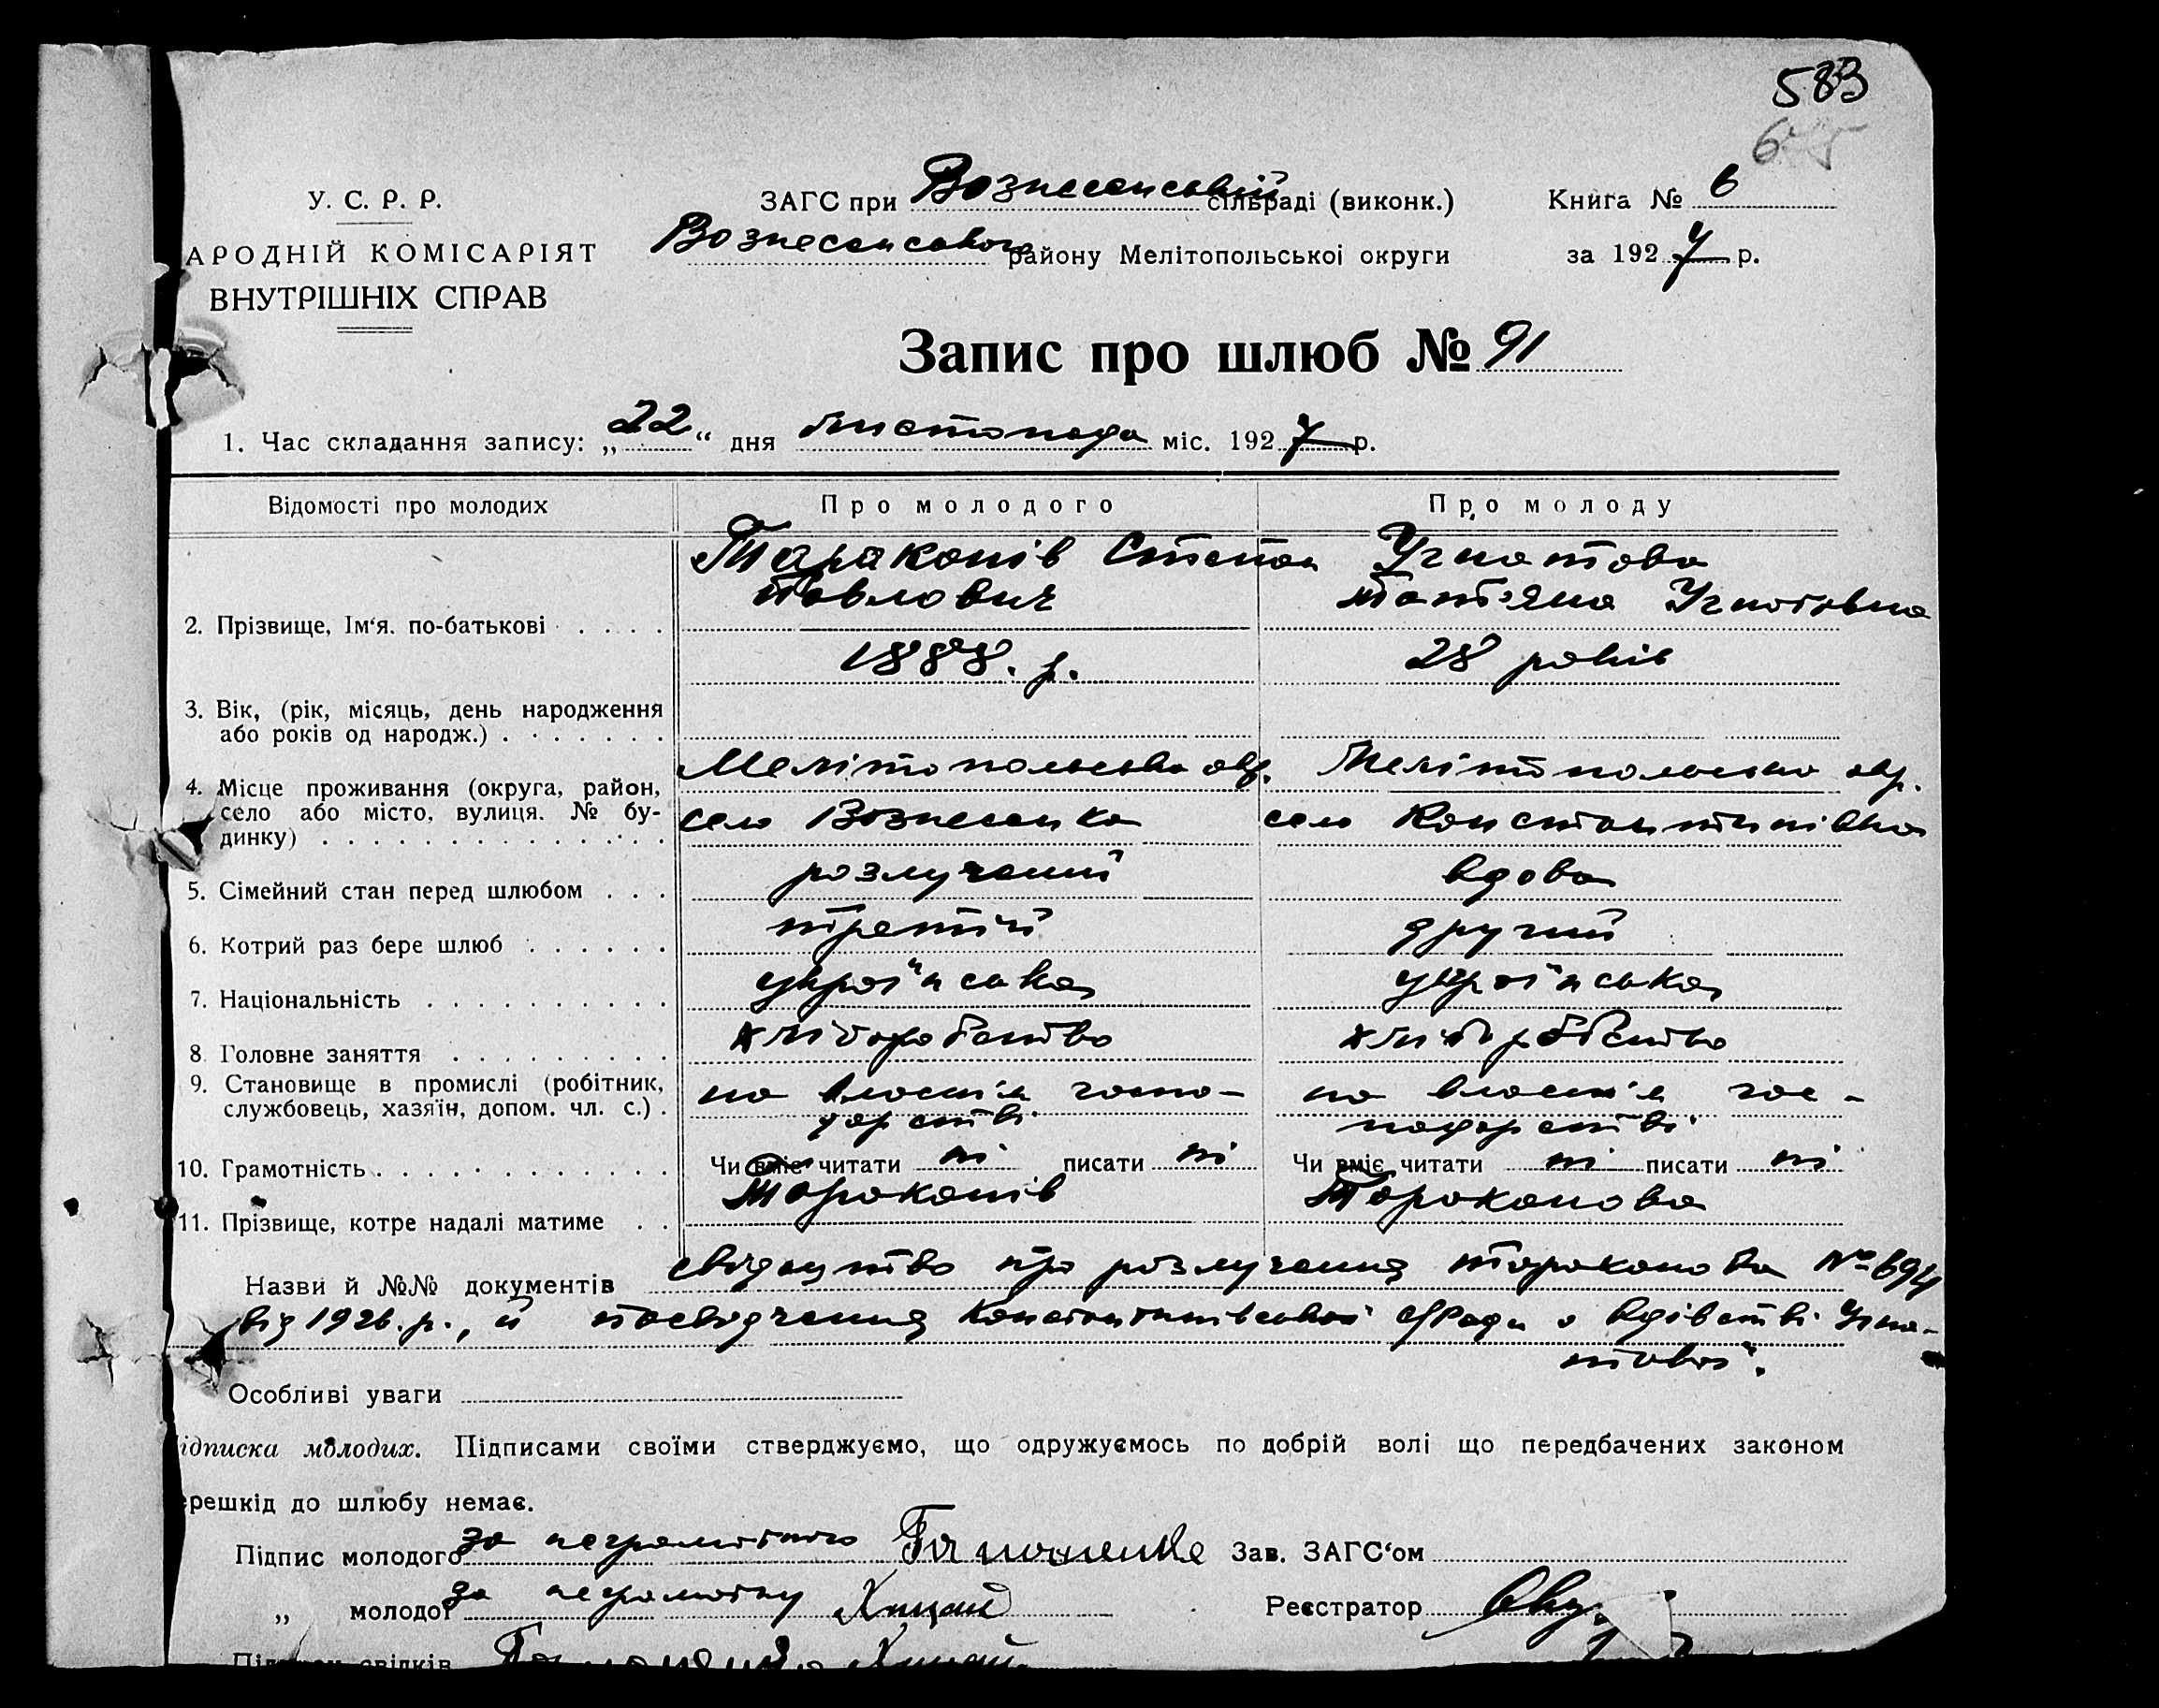 583
У. С. Р. Р.
АРОДНІЙ КОМІСАРІЯТ
ВНУТРІШНІХ СПРАВ
ЗАГС при Вознесенській сільраді (виконк.)
Вознесенського району Мелітопольської округи
Книга № 6
за 1927 р.
Запис про шлюб № 91
1. Час складання запису: „22“ дня листопада міс. 1927 р.
Відомості про молодих Про молодого Про молоду
Тараканів Степан Ігнатова
Павлович Тат'яна Ігнатовна
2. Прізвище, Ім‘я. по-батькові
1888. р. 28 років
3. Вік, (рік, місяць, день народження
або років од народж.)
Мелітопольська окр. Мелітопольська окр.
4. Місце проживання (округа, район,
село або місто, вулиця. № бу-
динку)
село Вознесенка село Константинівка
5. Сімейний стан перед шлюбом розлучений вдова
6. Котрий раз бере шлюб третій другий
7. Національність українська українська
8. Головне заняття хліборобство хліборобство
9. Становище в промислі (робітник,
службовець, хазяїн, допом. чл. с.)
на власнім госпо- на власнім гос-
дарстві. подарстві.
10. Грамотність Чи вміє читати ні писати ні Чи вміє читати ні писати ні
11. Прізвище, котре надалі матиме Тараканів Тараканова
Назви й №№ документів свідоцтво про розлучення тараканова № 694
від 1926. р., й посвідчення Константинівської с/Ради о вдівстві Ігна-
тової.
Особливі уваги
ідписка молодих. Підписами своїми стверджуємо, що одружуємось по добрій волі що передбачених законом
ерешкід до шлюбу немає.
Підпис молодого за неграмотного Зав. ЗАГС‘ом
„ молодої за неграмотну Хицай Реєстратор
свідків